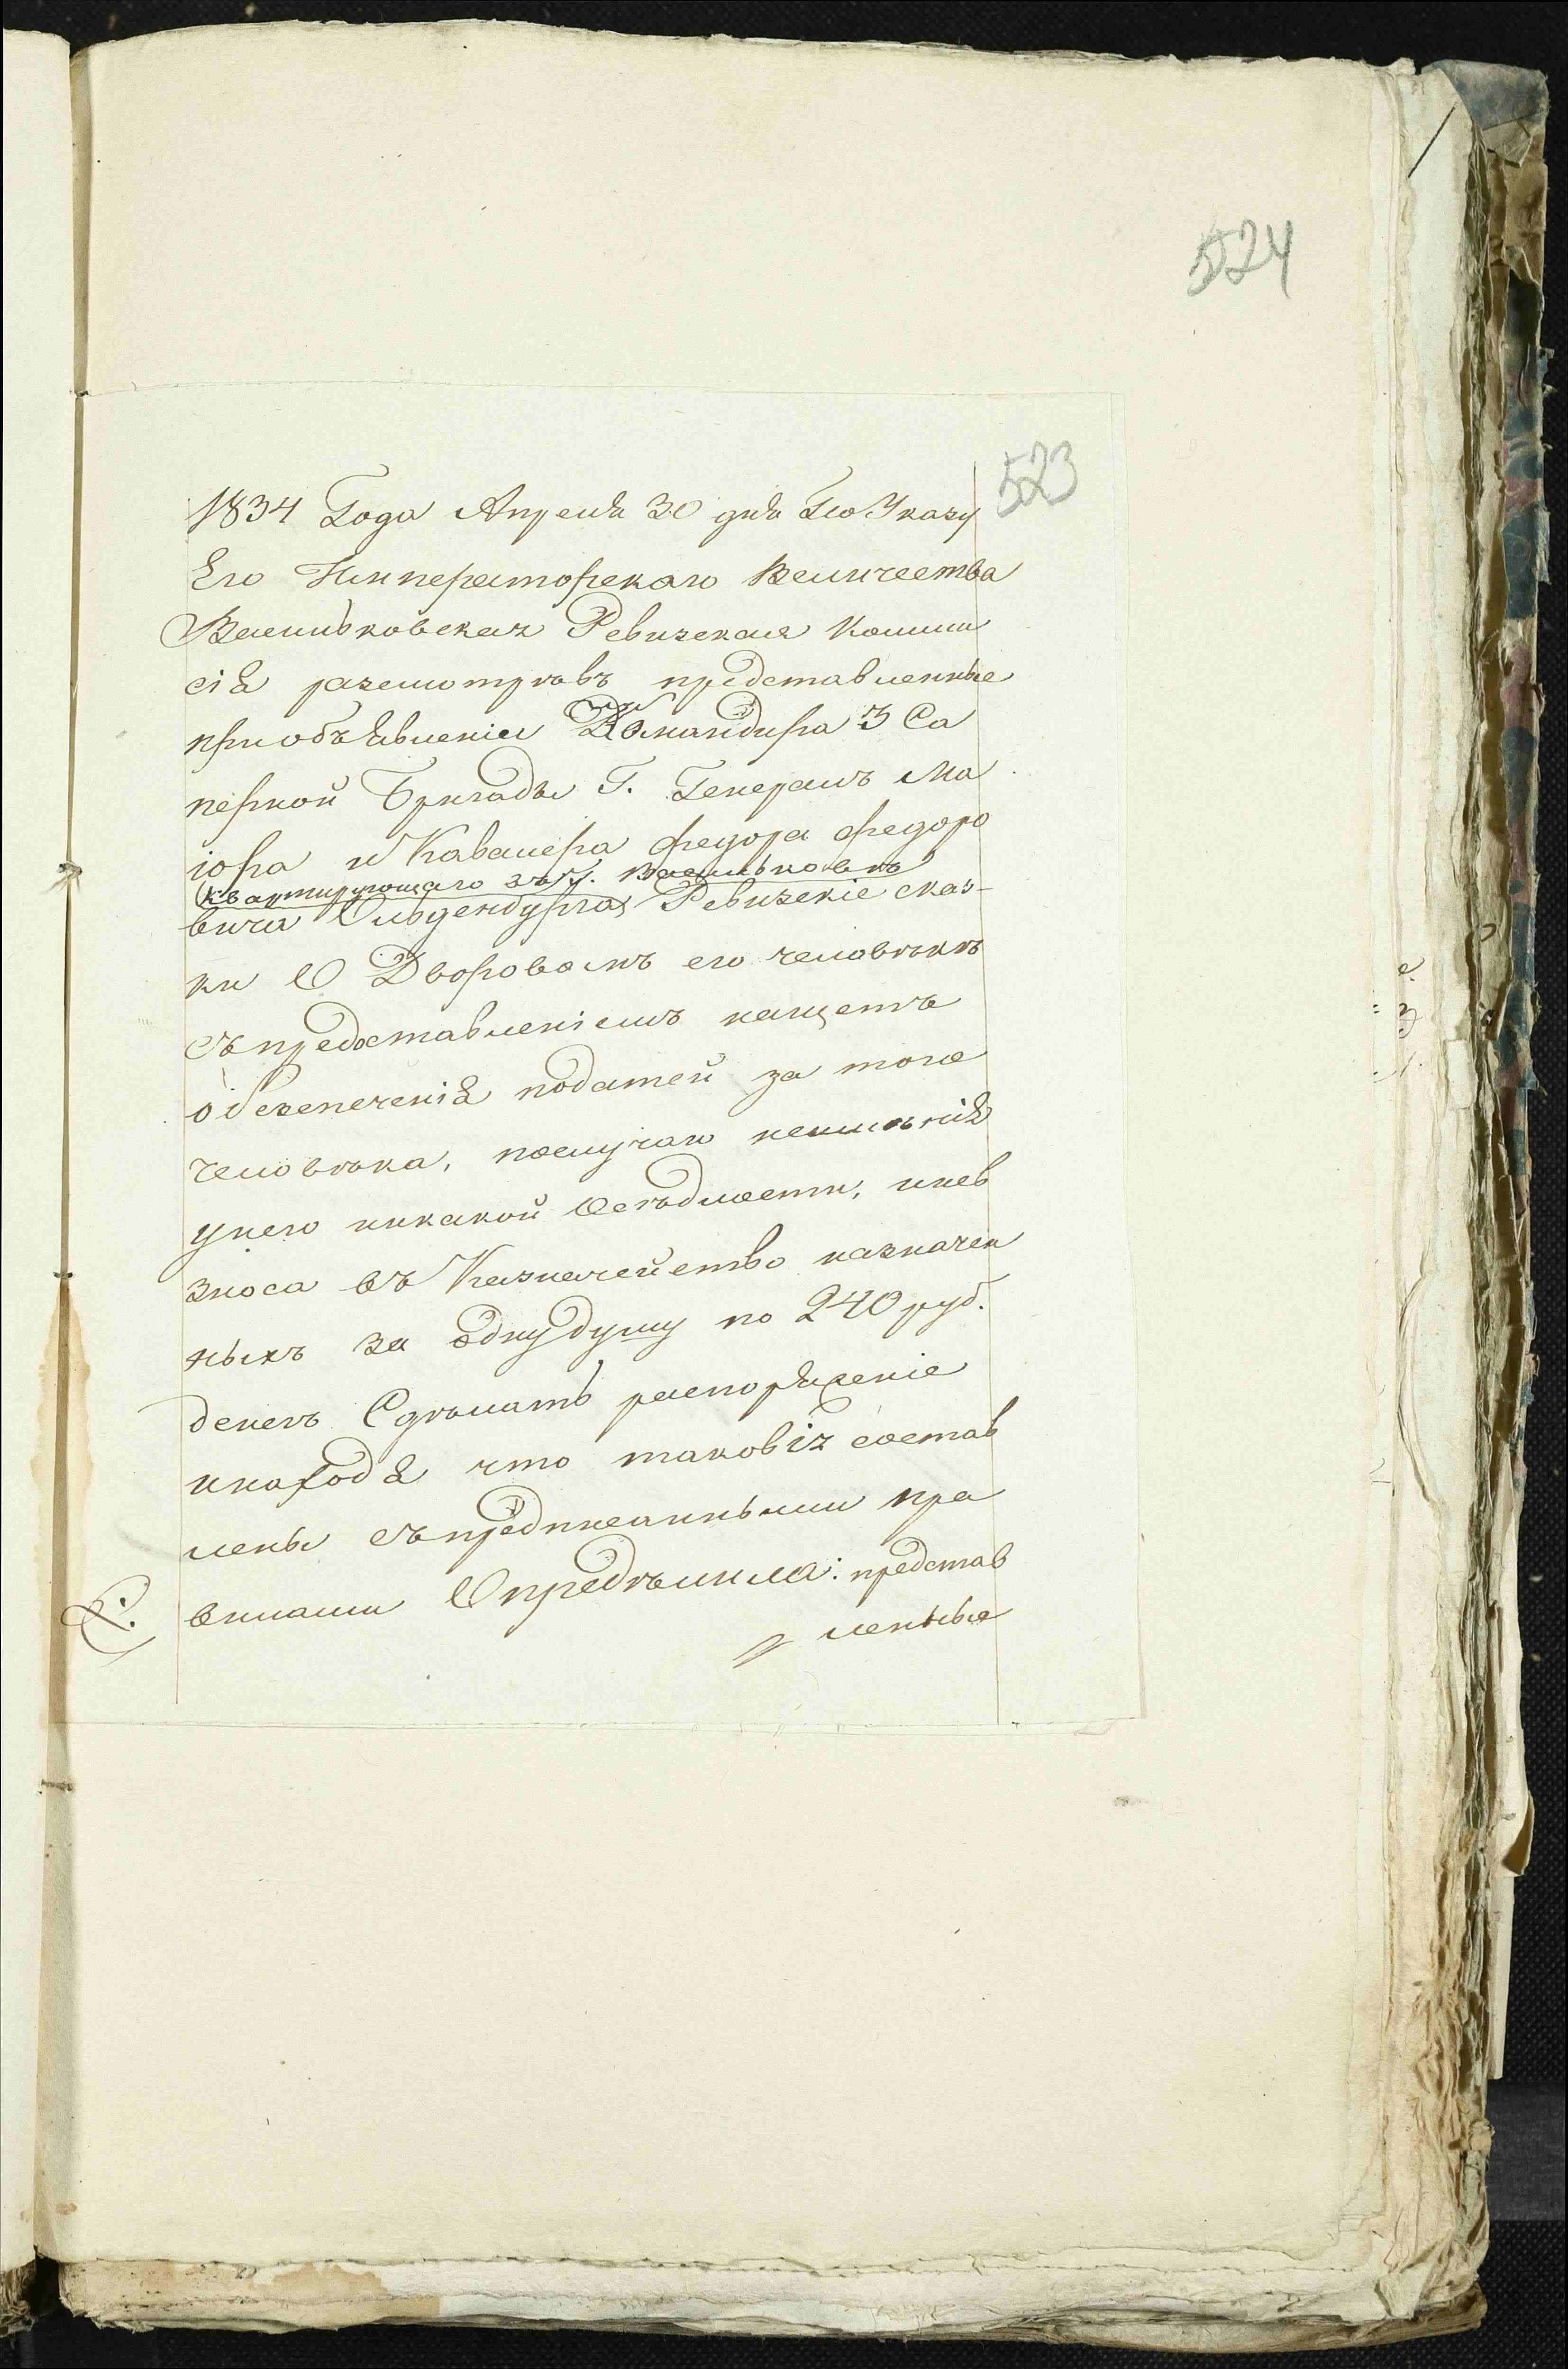 524
523
1834 Года Апреля 30 дня По Указу
Его Императорскаго Величества
Васильковская Ревизская Комми
сія разсмотревъ представленные
приобъявленіи Командира 3 Са
перной Бригады Г. Генералъ Ма
іора и Кавалера Федора Федоро
Квартирующаго въ г. Васильковѣ
вича Ревизскіе сказ-
ки О Дворовомъ его человѣкѣ
съ предоставленіемъ нащетъ
обезпеченія податей за того
человѣка, послучаю неимѣнія
унего никакой Осѣдлости, инев
зноса въ Казначейство назначен
ныхъ за одну душу по 240 руб.
денегъ Сдѣлать распоряженіе
инаходя что таковіе состав
лены съ предписанными пра
вилами Опредѣлила: представ
ленные